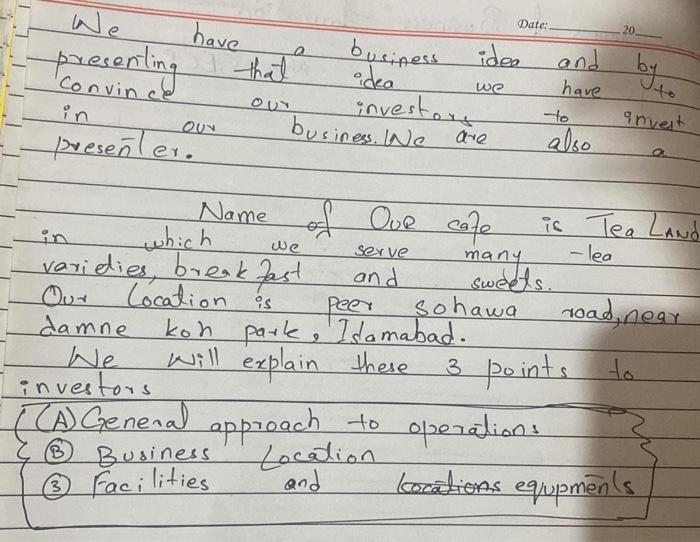 Date: 20
We have a business idea and by
presenting that idea we have to
convince our investors to invest
in our business. We are also a
presenter.
Name of Our cafe is Tea LAND
in which we serve many tea
varidies, break fast and sweets.
Our Location is peer sohawa road, near
damne koh park, Islamabad.
We will explain these 3 points to
investors
(A) General approach to operations
(B) Business Location
(3) Facilities and locations equpments